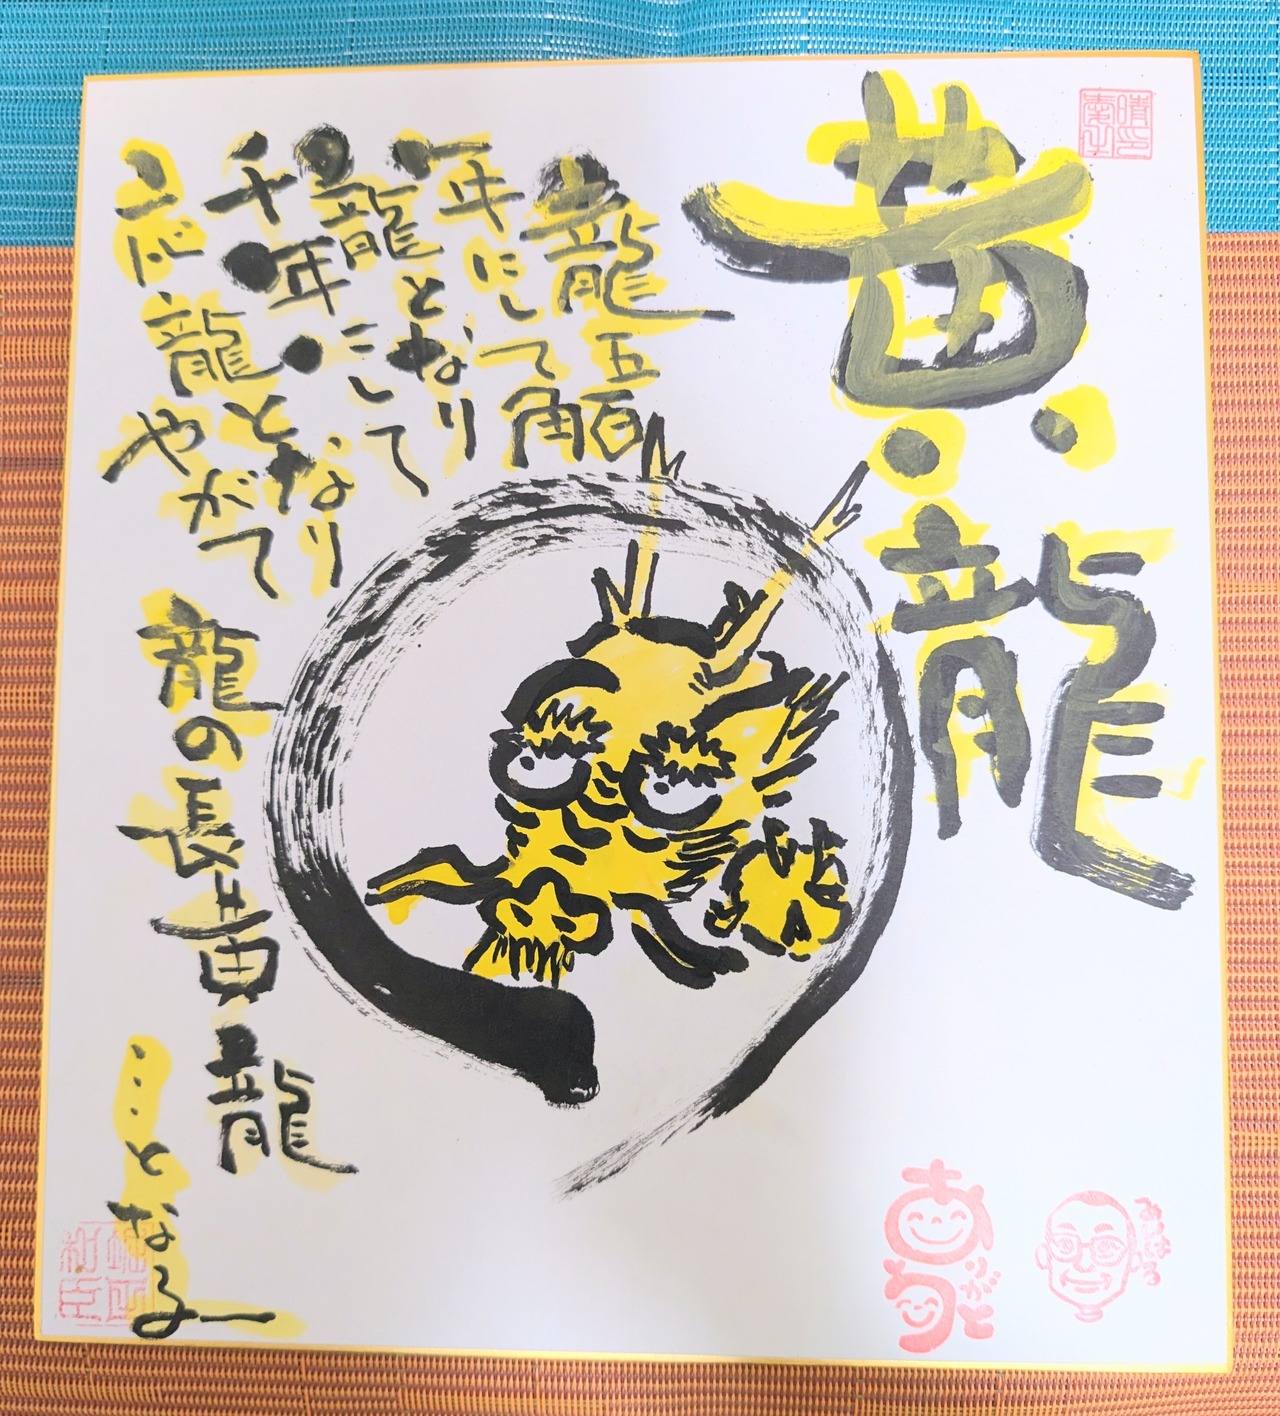 黄龍
龍五百
年にして角
龍となり
千年にして
応龍となり
やがて
龍の長黄龍
…となる
ありがとう